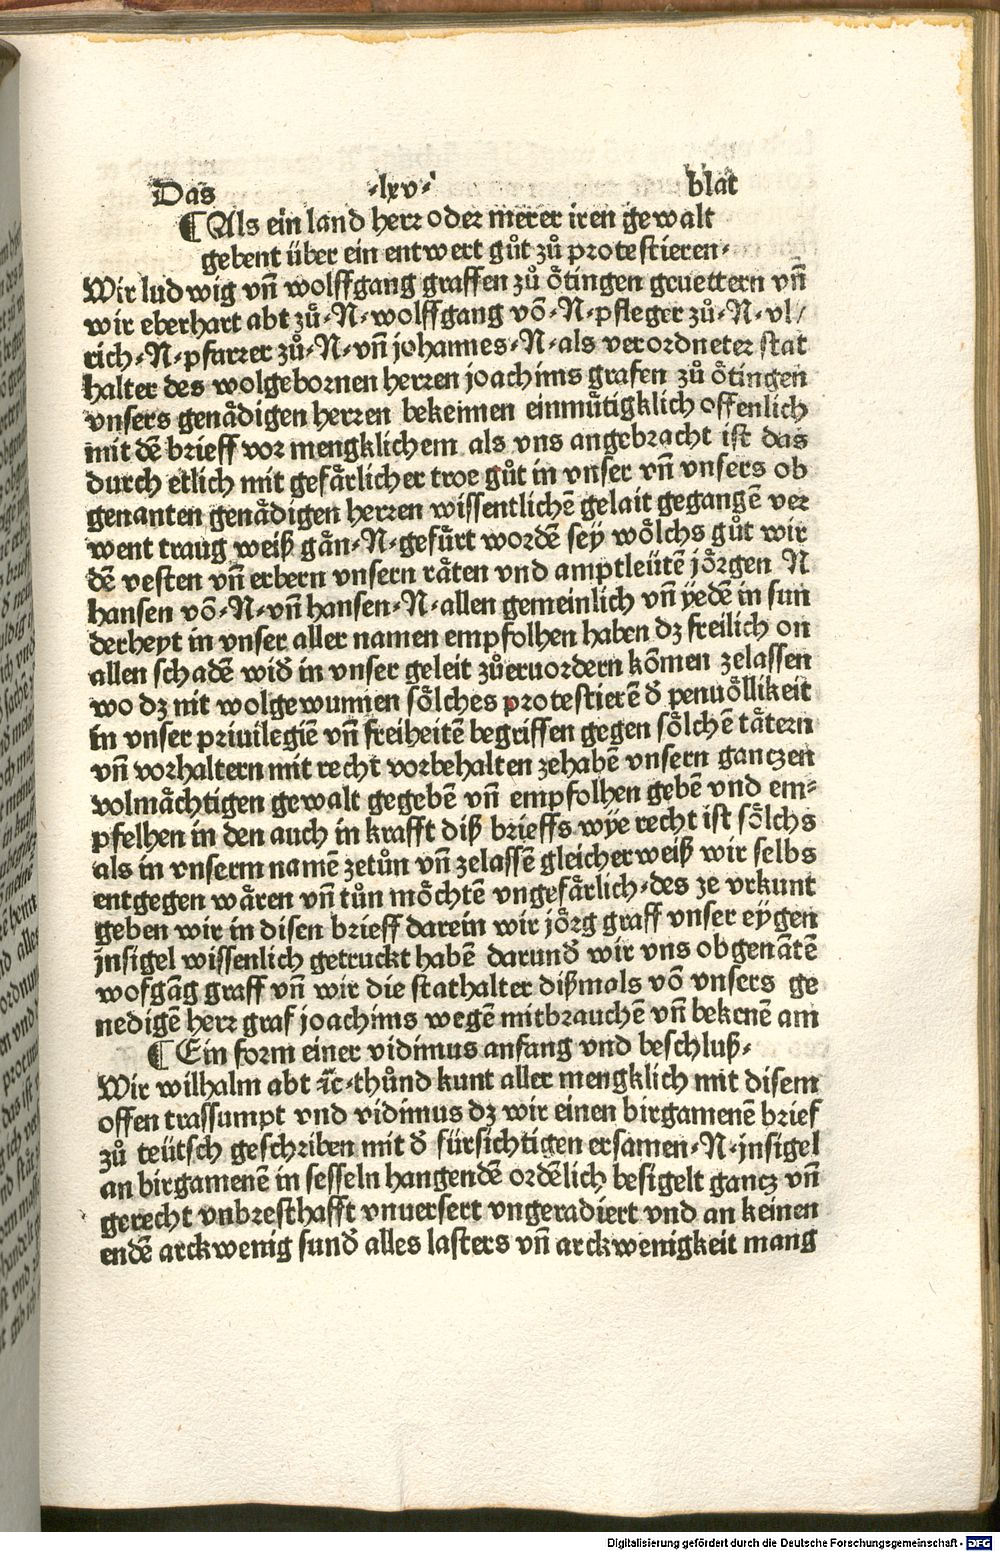 Das .lxv. blat
¶ Als ein land herr oder merer iren gewalt
gebent über ein entwert gůt zů protestieren.
Wir ludwig vñ wolffgang graffen zů ötingen geuettern vñ
wir eberhart abt zů.N.wolffgang võ.N.pfleger zů.N.vl/
rich.N.pfarrer zů.N.vñ johannes.N.als verordneter stat
halter des wolgebornen herren joachims grafen zů ötingen
vnsers genädigen herren bekennen einmütigklich offenlich
mit dē brieff vor mengklichem als vns angebracht ist das
durch etlich mit gefärlicher troe gůt in vnser vñ vnsers ob
genanten genädigen herren wissentlichē gelait gegangē ver
went traug weiß gän.N.gefürt wordē sey wölchs gůt wir
dē vesten vñ erbern vnsern räten vnd amptleütē jörgen N
hansen võ.N.vñ hansen.N.allen gemeinlich vñ yedē in sun
derheyt in vnser aller namen empfolhen haben dz freilich on
allen schadē wid̄ in vnser geleit zůeruordern kōmen zelassen
wo dz nit wolgewunnen sölches protestierē d̄ penuöllikeit
in vnser priuilegiē vñ freiheitē begriffen gegen sölchē tätern
vñ vorhaltern mit recht vorbehalten zehabē vnsern ganczen
volmächtigen gewalt gegebē vñ empfolhen gebē vnd em⸗
pfelhen in den auch in krafft diß brieffs wye recht ist sölchs
als in vnserm namē zetůn vñ zelassē gleicherweiß wir selbs
entgegen wären vñ tůn möchtē vngefärlich.des ze vrkunt
geben wir in disen brieff darein wir jörg graff vnser eygen
jnsigel wissenlich getruckt habē darund̄ wir vns obgenātē
wofgāg graff vñ wir die stathalter dißmals võ vnsers ge
nedigē herr graf joachims wegē mitbrauchē vñ bekenē am
¶ Ein form einer vidimus anfang vnd beschluß.
Wir wilhalm abt ⁊c.thůnd kunt aller mengklich mit disem
offen trassumpt vnd vidimus dz wir einen birgamenē brief
zů teütsch geschriben mit d̄ fürsichtigen ersamen.N.jnsigel
an birgamenē in sesseln hangendē ordēlich besigelt gancz vñ
gerecht vnbresthafft vnuersert vngeradiert vnd an keinen
endē arckwenig sund̄ alles lasters vñ arckwenigkeit mang
Digitalisierung gefördert durch die Deutsche Forschungsgemeinschaft - DFG